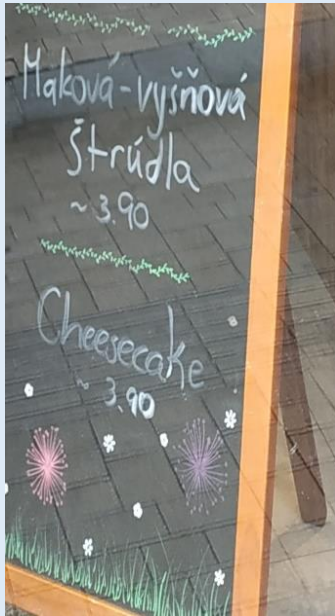 Maková-vyšňová
štrúdla
~ 3.90
Cheesecake
~ 3,90